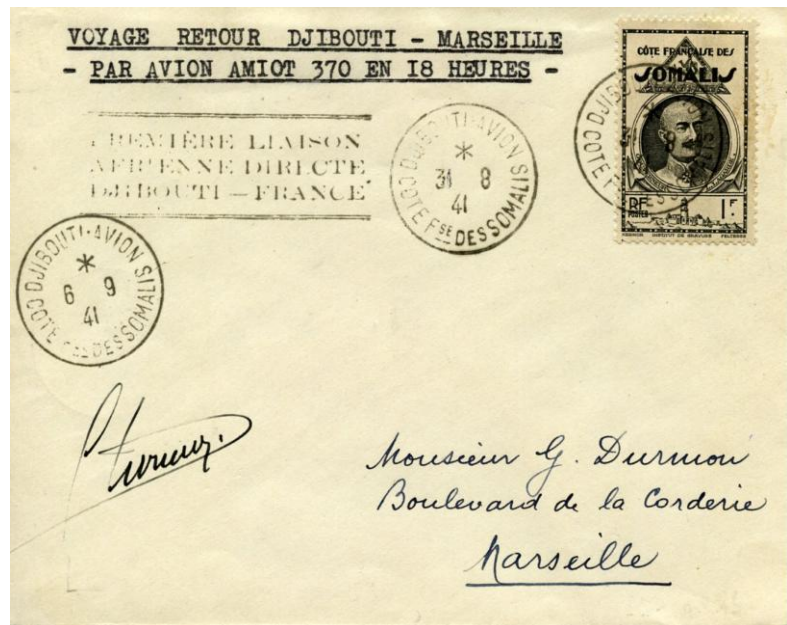 VOYAGE RETOUR DJIBOUTI - MARSEILLE
- PAR AVION AMIOT 370 EN I8 HEURES -
PREMIÈRE LIAISON
AÉRIENNE DIRECTE
DJIBOUTI — FRANCE
DJIBOUTI-AVION
31 8
41
COTE FSE DES SOMALIS
CÔTE FRANÇAISE DES
SOMALIS
RF
POSTES
1F
INSTITUT DE GRAVURE
DJIBOUTI-AVION
6 9
41
COTE FSE DES SOMALIS
Monsieur G. Durmon
Boulevard de la Corderie
Marseille